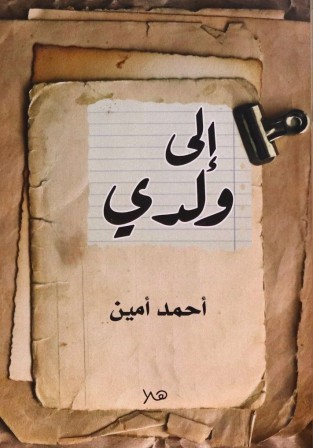 إلى
ولدي
أحمد أمين
هلا